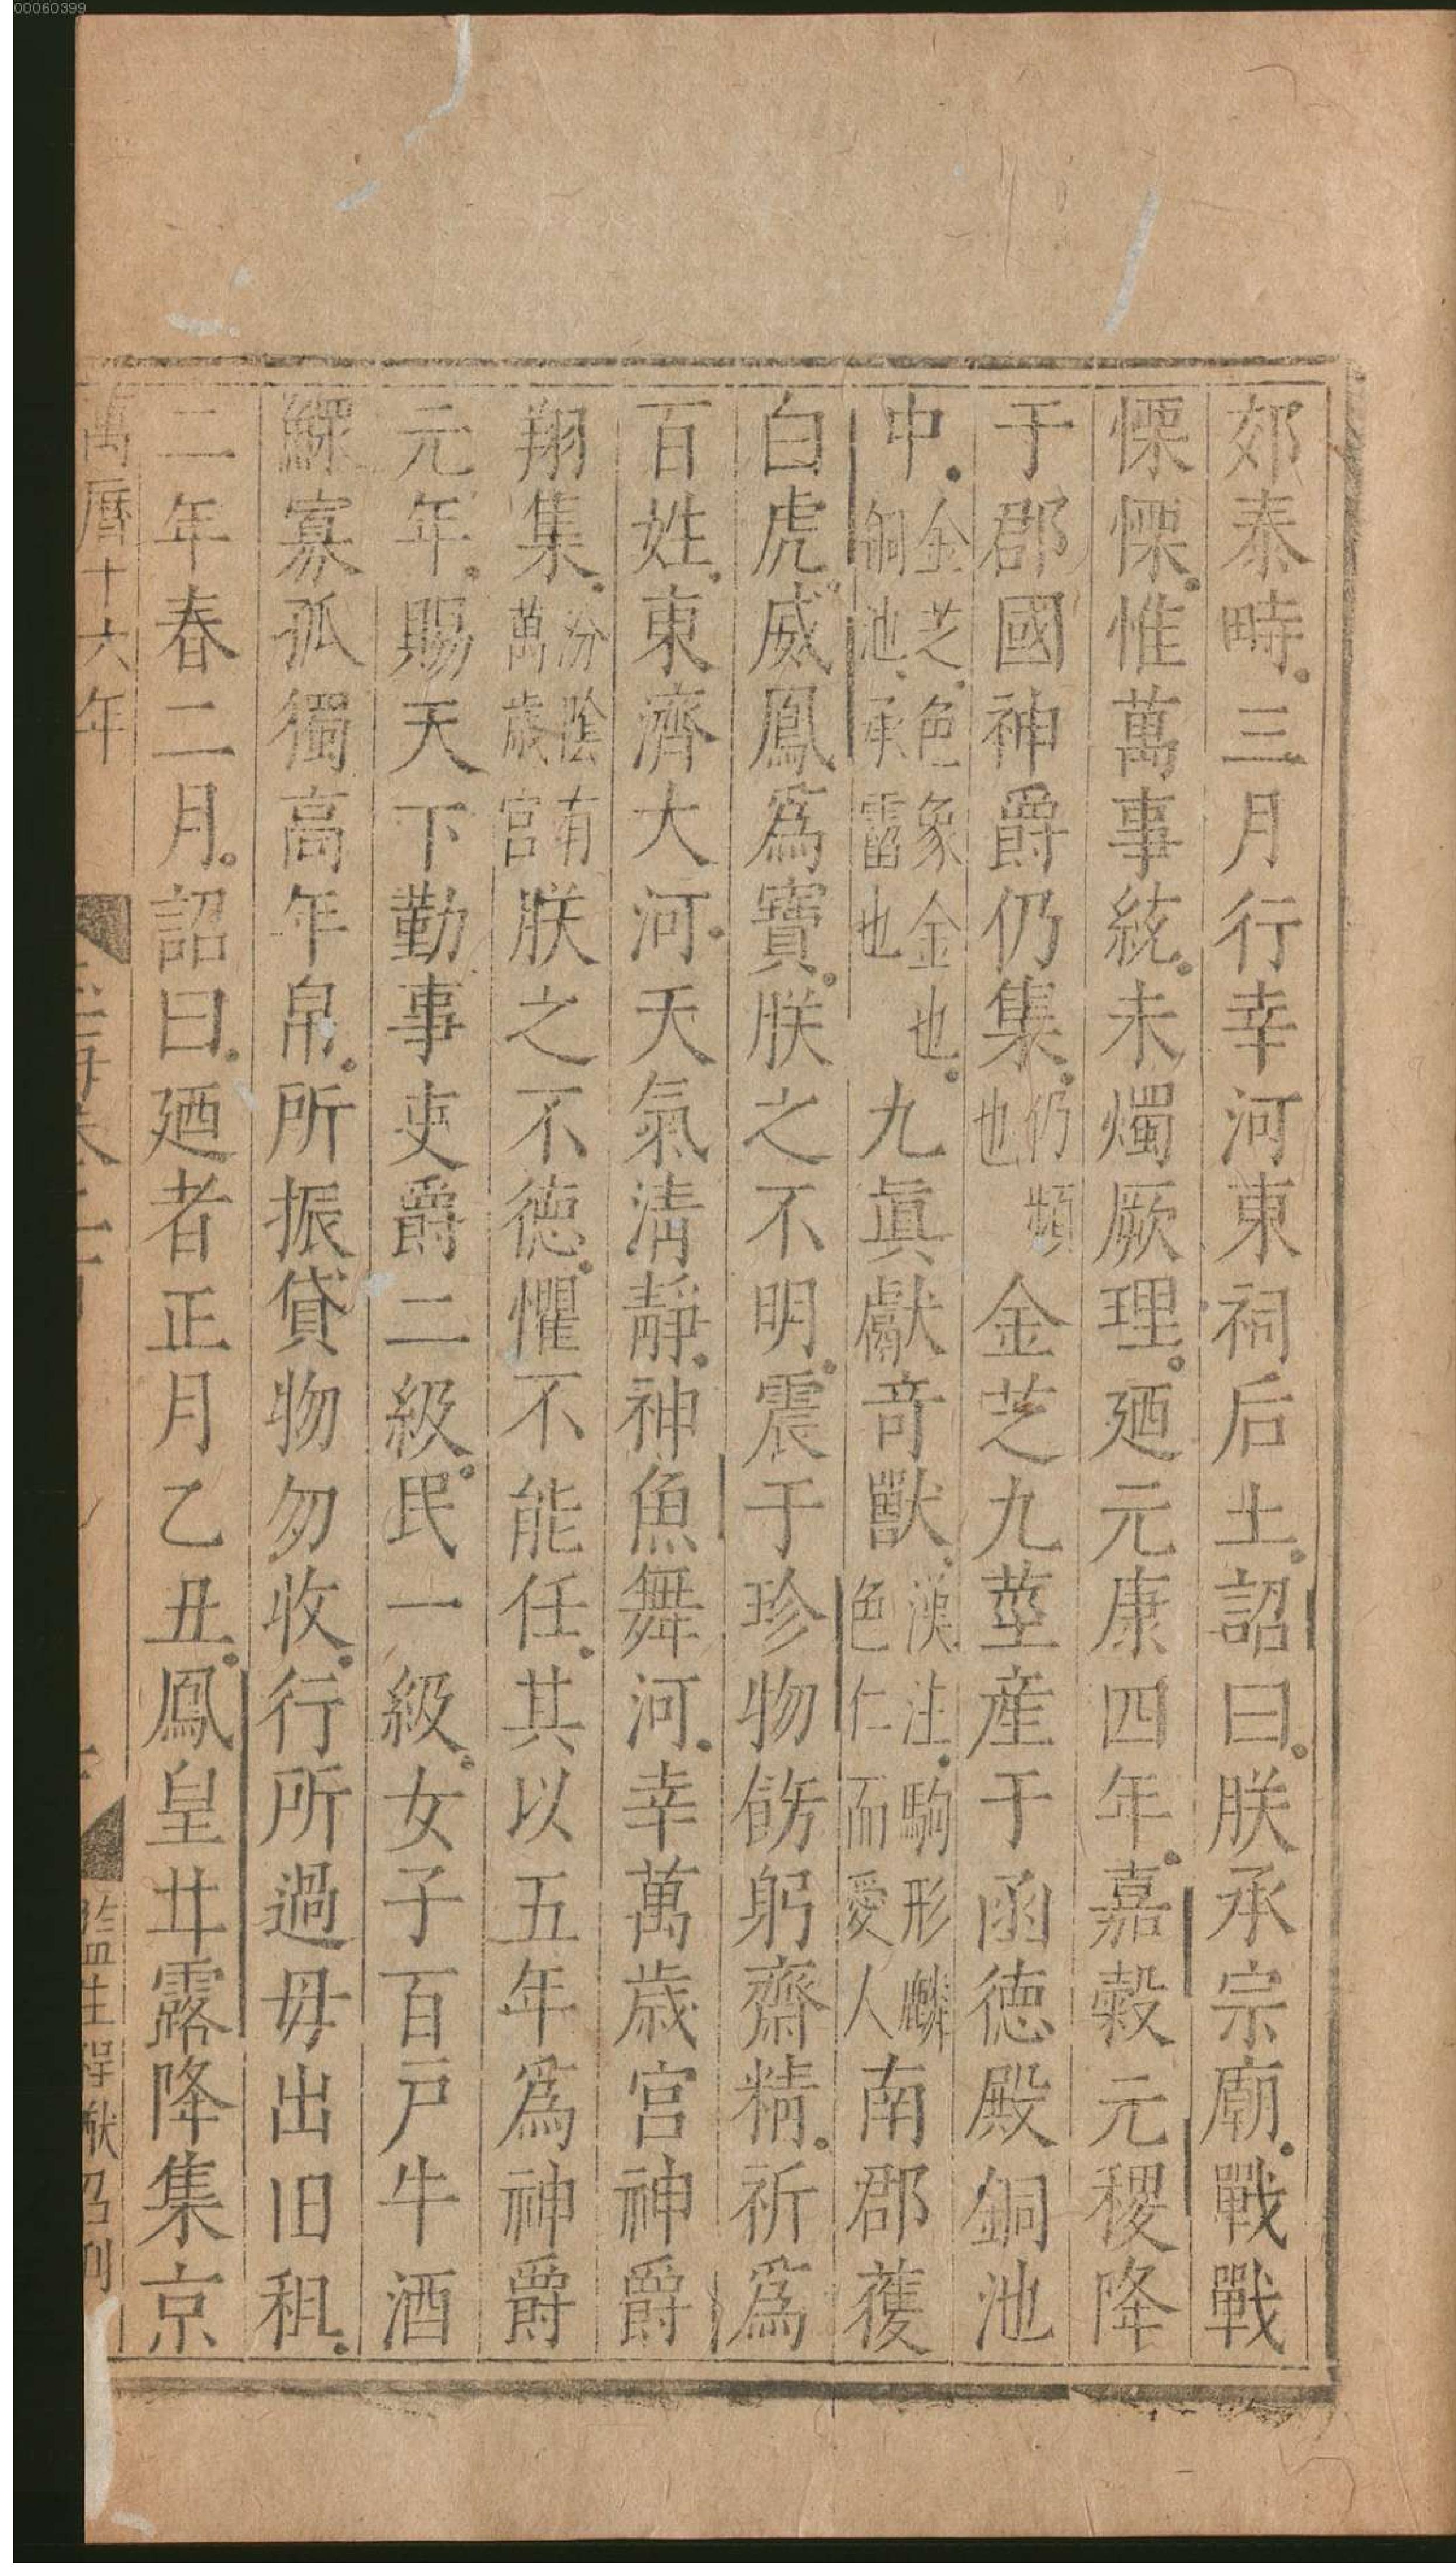 00060399
郊泰畤三月行幸河東祠后土詔曰朕承宗廟戰戰
慄慄惟萬事統未燭厥理廼元康四年嘉穀元稷降
于郡國神爵仍集仍頻也金芝九莖産于函德殿銅池
中金芝色象金也銅池承霤也九眞獻竒獸漢注駒形麟色仁而愛人南郡獲
白虎威鳳爲寶朕之不明震于珍物飭躬齋精祈爲
百姓東濟大河天氣清靜神魚舞河幸萬歳宮神爵
翔集汾陰有萬歳宮朕之不德懼不能任其以五年爲神爵
元年賜天下勤事吏爵二級民一級女子百戸牛酒
鰥寡孤獨高年帛所振貸物勿收行所過毋出旧租
二年春二月詔曰廼者正月乙丑鳳皇甘露降集京
萬曆十六年
監生程猷召刊